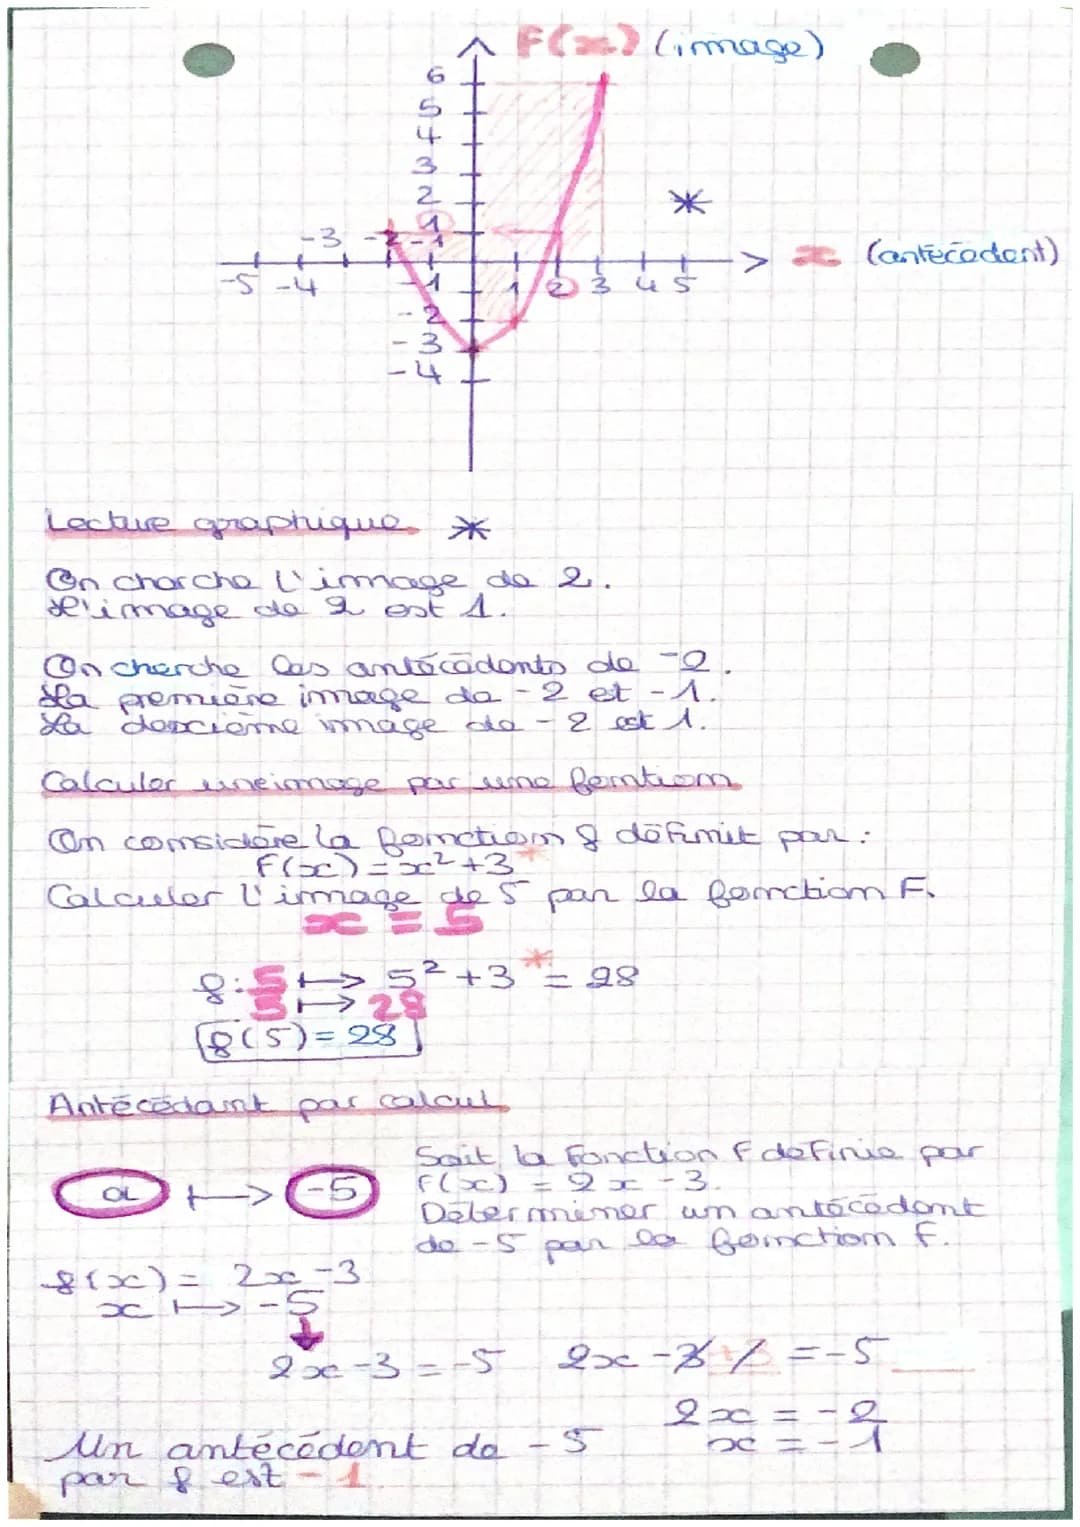 F(x) (image)
6
5
4
3
2
1
-3 -2 -1
x (antécédent)
-5 -4 -1 1 2 3 4 5
-2
-3
-4
Lecture graphique *
On cherche l'image de 2.
L'image de 2 est 1.
On cherche les antécédents de -2.
La première image de -2 et -1.
La deuxième image de -2 est 1.
Calculer une image par une fontion
On considère la fonction f définit par :
F(x) = x² + 3 *
Calculer l'image de 5 par la fonction F.
x = 5
f: 5 ⟼ 5² + 3 * = 28
5 ⟼ 28
f(5) = 28
Antécédant par calcul
Soit la fonction f definie par
f(x) = 2x - 3.
a ⟼ -5
Déterminer un antécédent
de -5 par la fonction f.
f(x) = 2x - 3
x ⟼ -5
2x - 3 = -5 2x - 3 + 3 = -5
2x = -2
x = -1
Un antécédent de -5
par f est -1